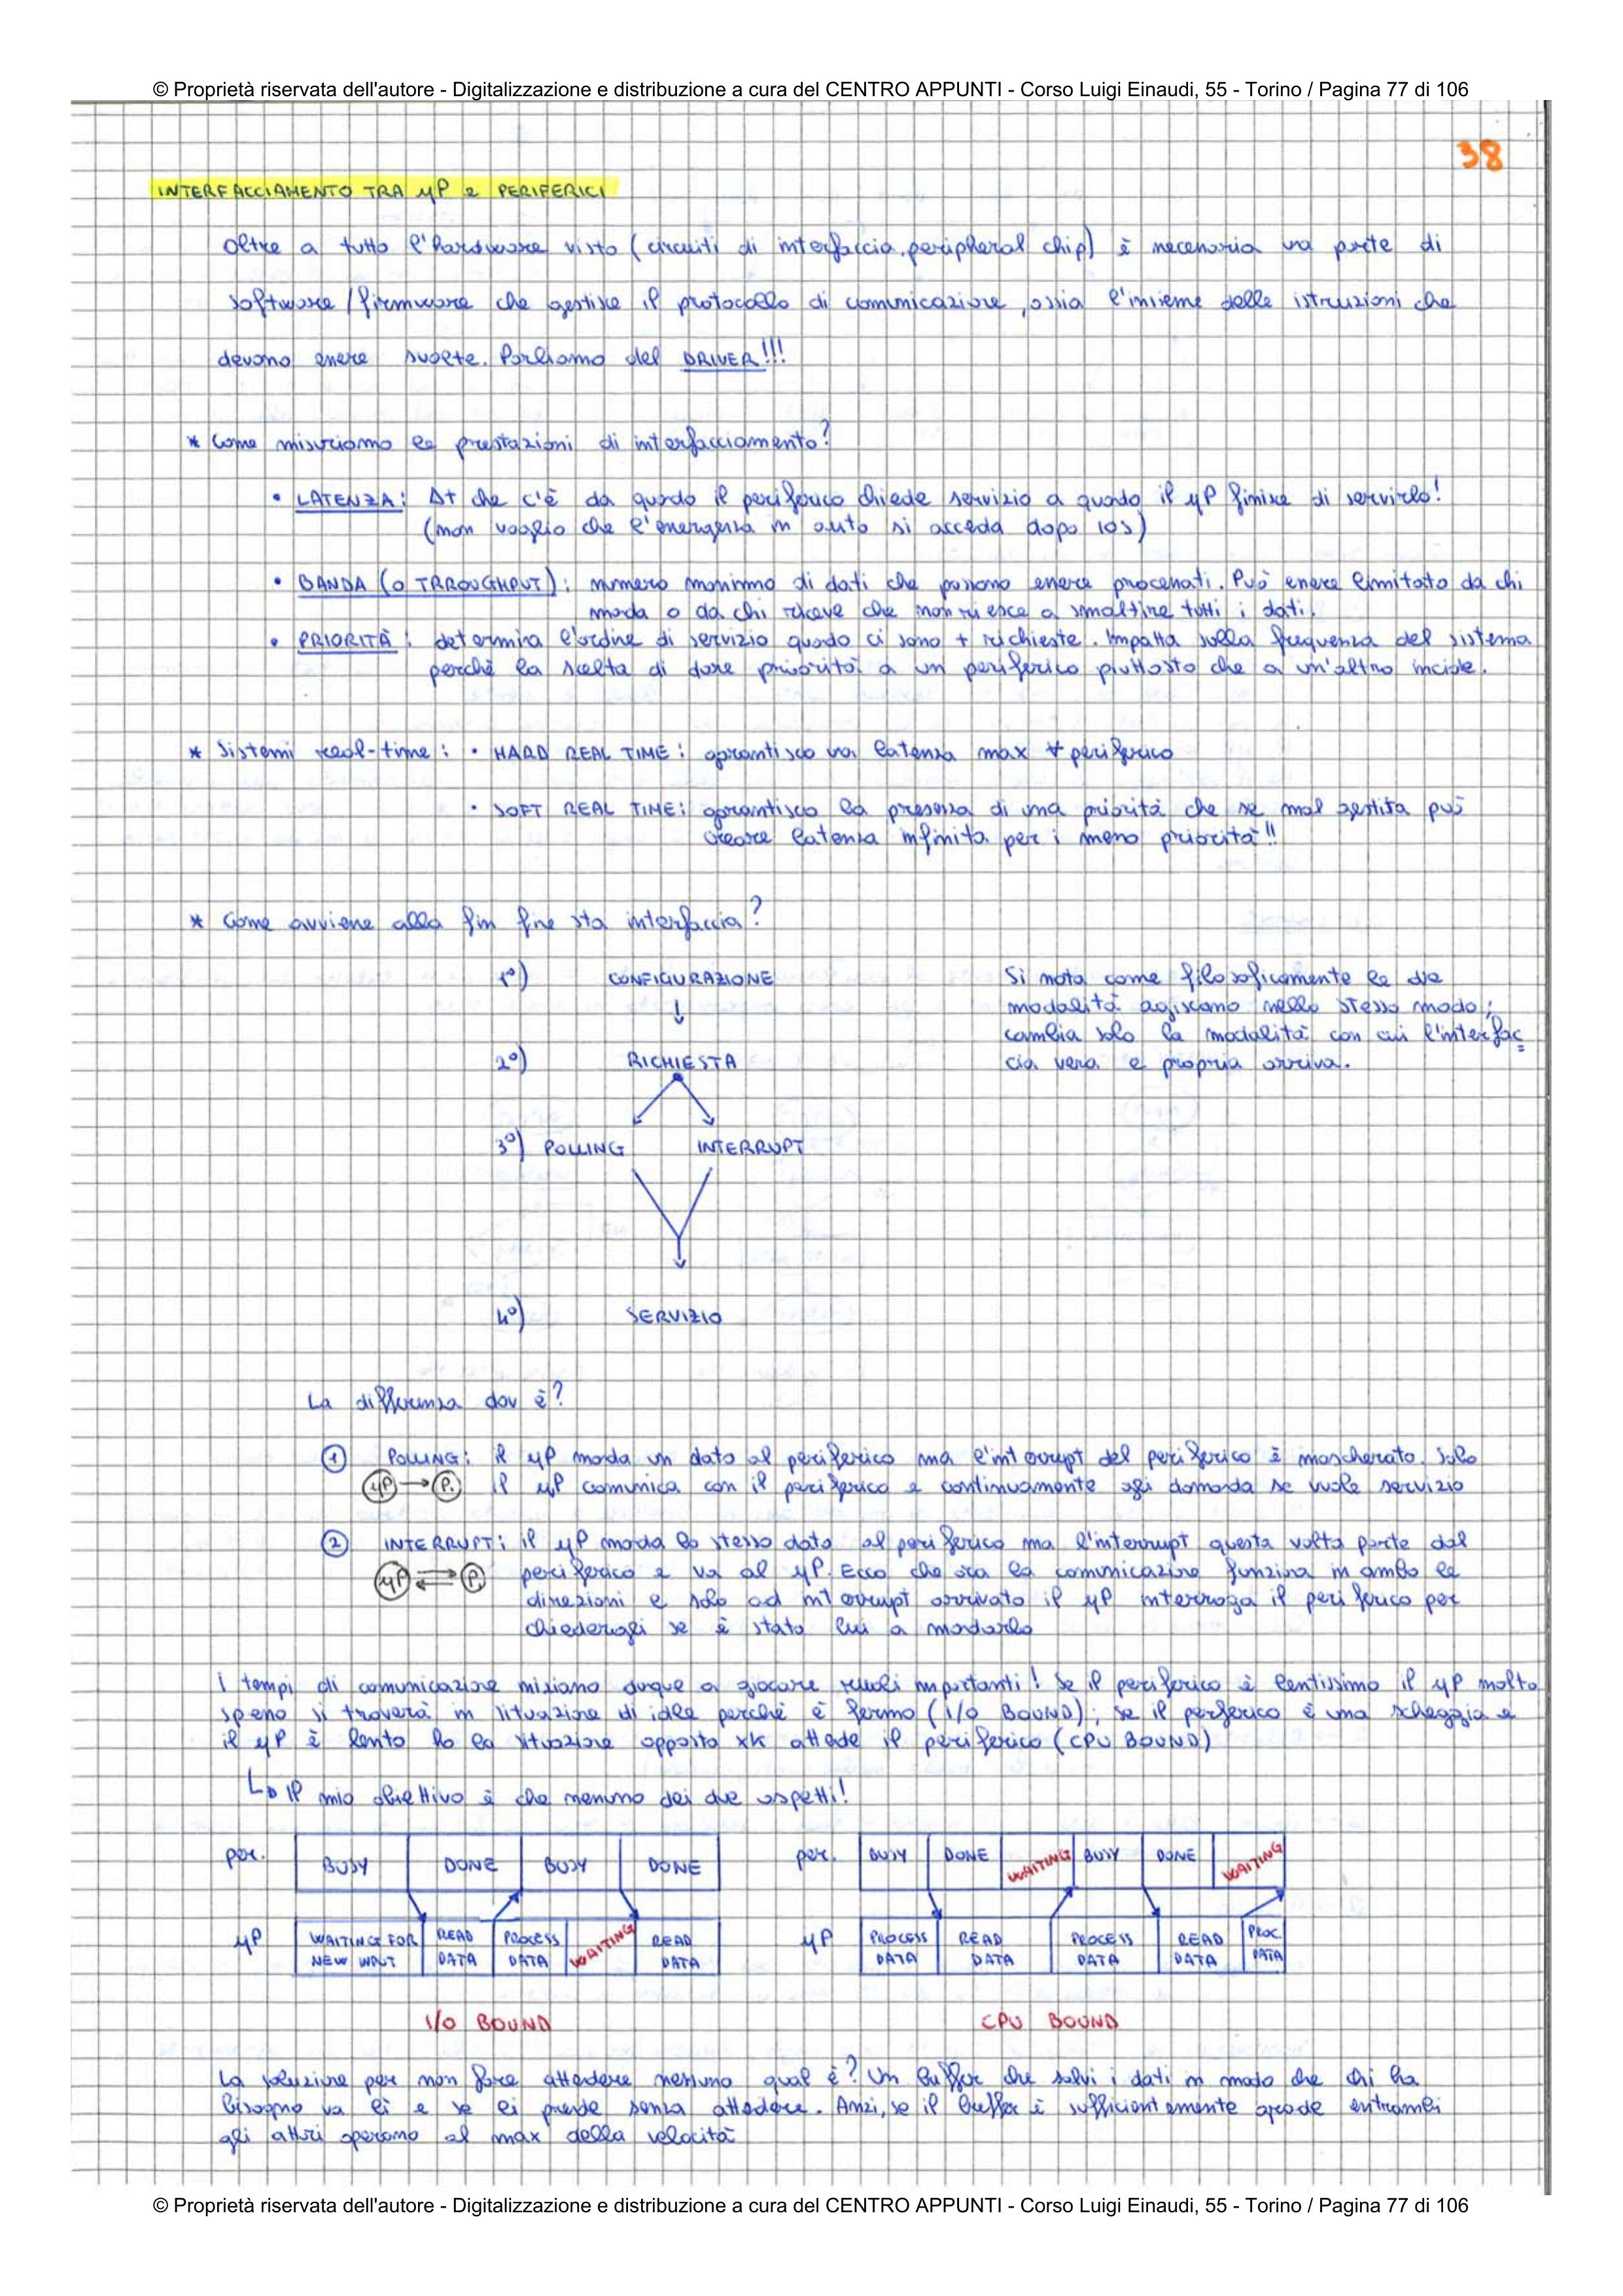 © Proprietà riservata dell'autore - Digitalizzazione e distribuzione a cura del CENTRO APPUNTI - Corso Luigi Einaudi, 55 - Torino / Pagina 77 di 106
38
INTERFACCIAMENTO TRA μP e PERIFERICI
Oltre a tutto l'hardware visto (circuiti di interfaccia, peripheral chip) è necessaria una parte di
software/firmware che gestisce il protocollo di comunicazione, ossia l'insieme delle istruzioni che
devono essere svolte. Parliamo del DRIVER!!!
* Come misuriamo le prestazioni di interfacciamento?
• LATENZA: Δt che c'è da quando il periferico chiede servizio a quando il μP finisce di servirlo!
(non voglio che l'emergenza in auto si acceda dopo 10s)
• BANDA (O TRROUGHPUT): numero massimo di dati che possono essere processati. Può essere limitato da chi
manda o da chi riceve che non riesce a smaltire tutti i dati.
• PRIORITÀ: determina l'ordine di servizio quando ci sono + richieste. Impatta sulla frequenza del sistema
perchè la scelta di dare priorità a un periferico piuttosto che a un'altro incide.
* Sistemi real-time: • HARD REAL TIME: garantisco una latenza max ∀ periferico
• SOFT REAL TIME: garantisco la presenza di una priorità che se mal gestita può
creare latenza infinita per i meno priorità!!
* Come avviene alla fin fine sta interfaccia?
1°) CONFIGURAZIONE
↓
2°) RICHIESTA
3°) POLLING INTERRUPT
4°) SERVIZIO
Si nota come filosoficamente le due
modalità agiscano nello stesso modo;
cambia solo la modalità con cui l'interfac
cia vera e propria arriva.
La differenza dov è?
① POLLING: il μP manda un dato al periferico ma l'interrupt del periferico è mascherato. Solo
μP → P. il μP comunica con il periferico e continuamente gli domanda se vuole servizio
② INTERRUPT: il μP manda lo stesso dato al periferico ma l'interrupt questa volta parte dal
μP ⇄ P. periferico e va al μP. Ecco che ora la comunicazione funziona in ambo le
direzioni e solo ad interrupt arrivato il μP interroga il periferico per
chiedergli se è stato lui a mandarlo
I tempi di comunicazione iniziano dunque a giocare ruoli importanti! Se il periferico è lentissimo il μP molto
spesso si troverà in situazione di idle perchè è fermo (I/O BOUND); se il perferico è una scheggia e
il μP è lento ho la situazione opposta xk attede il periferico (CPU BOUND)
↳ Il mio obiettivo è che nessuno dei due aspetti!
per. BUSY DONE BUSY DONE
μP WAITING FOR NEW INPUT READ DATA PROCESS DATA WAITING READ DATA
I/O BOUND
per. BUSY DONE WAITING BUSY DONE WAITING
μP PROCESS DATA READ DATA PROCESS DATA READ DATA PROC. DATA
CPU BOUND
La soluzione per non fare attedere nessuno qual è? Un buffer che salvi i dati in modo che chi ha
bisogno va lì e se li prende senza attedere. Anzi, se il buffer è sufficientemente grande entrambi
gli attori operano al max della velocità
© Proprietà riservata dell'autore - Digitalizzazione e distribuzione a cura del CENTRO APPUNTI - Corso Luigi Einaudi, 55 - Torino / Pagina 77 di 106